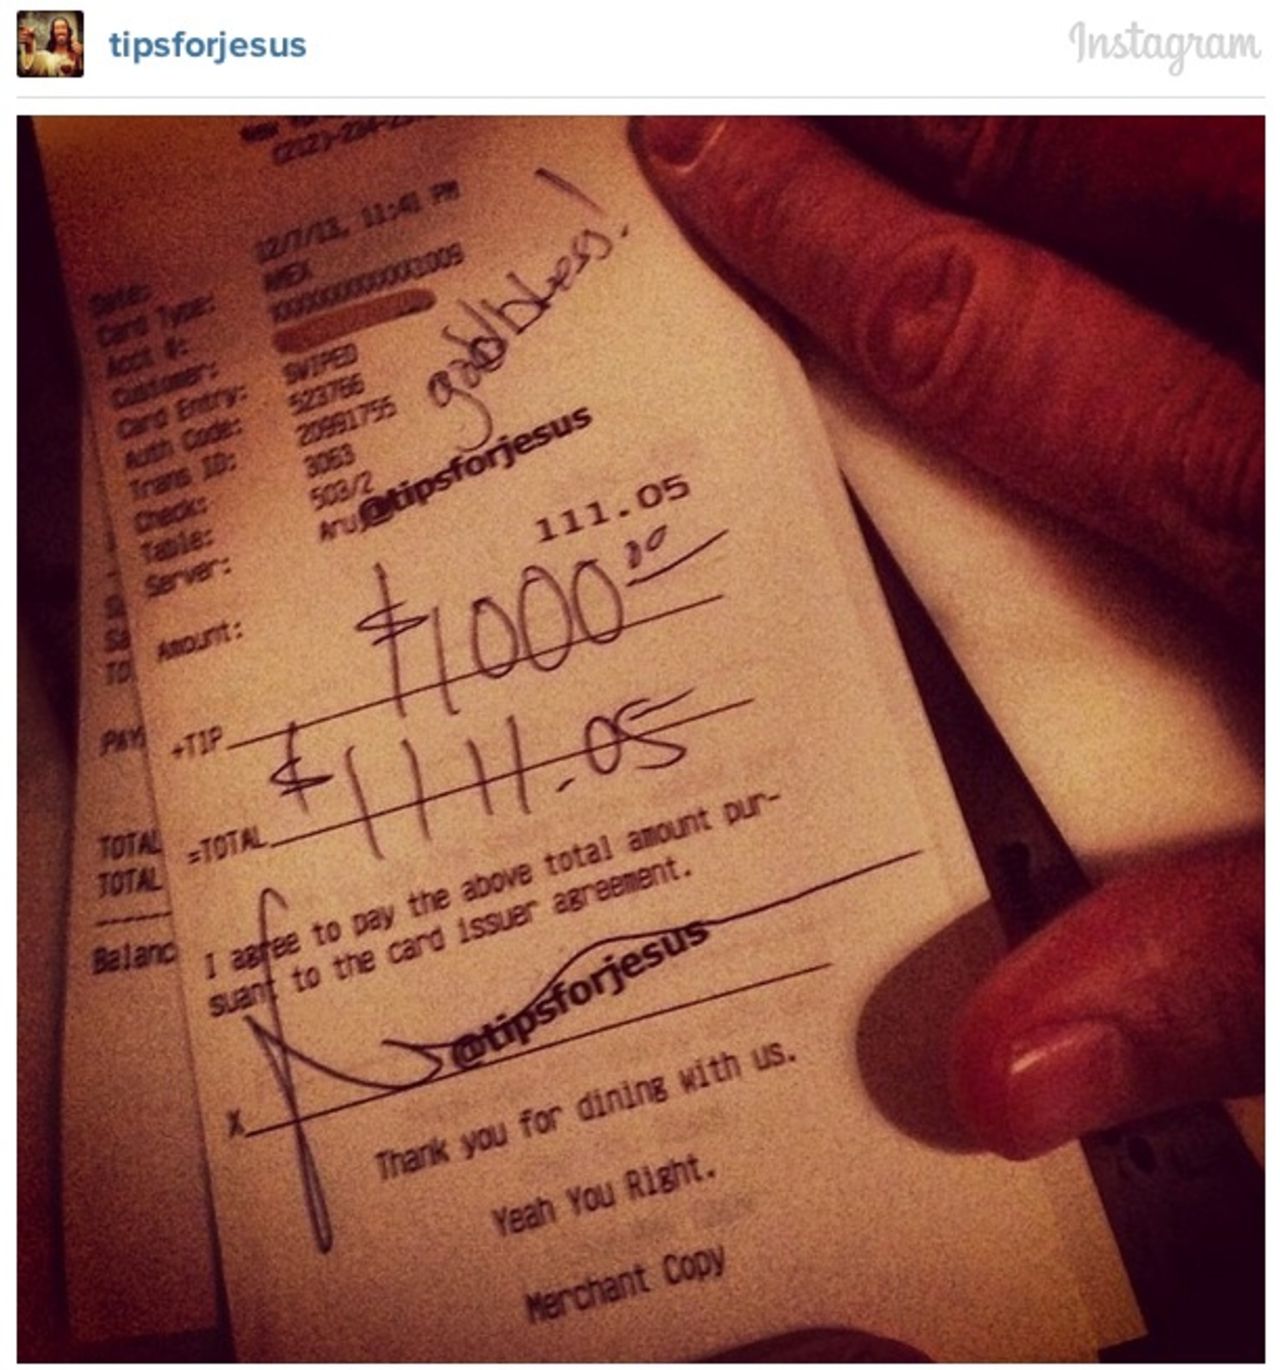 tipsforjesus
Instagram
New
(212)-
12/7/13, 11:41 PM
Date:
Card Type: AMEX
Acct #: XXXXXXXXXXX1009
Customer:
Card Entry: SWIPED
Auth Code: 523766
Trans ID: 20991755
Check: 3063
Table: 503/2
Server:
god bless!
@tipsforjesus
Amount: 111.05
+TIP $1000.00
=TOTAL $1111.05
I agree to pay the above total amount pur-
suant to the card issuer agreement.
@tipsforjesus
X
Thank you for dining with us.
Yeah You Right.
Merchant Copy
TO
PAY
TOTAL
TOTAL
Balanc